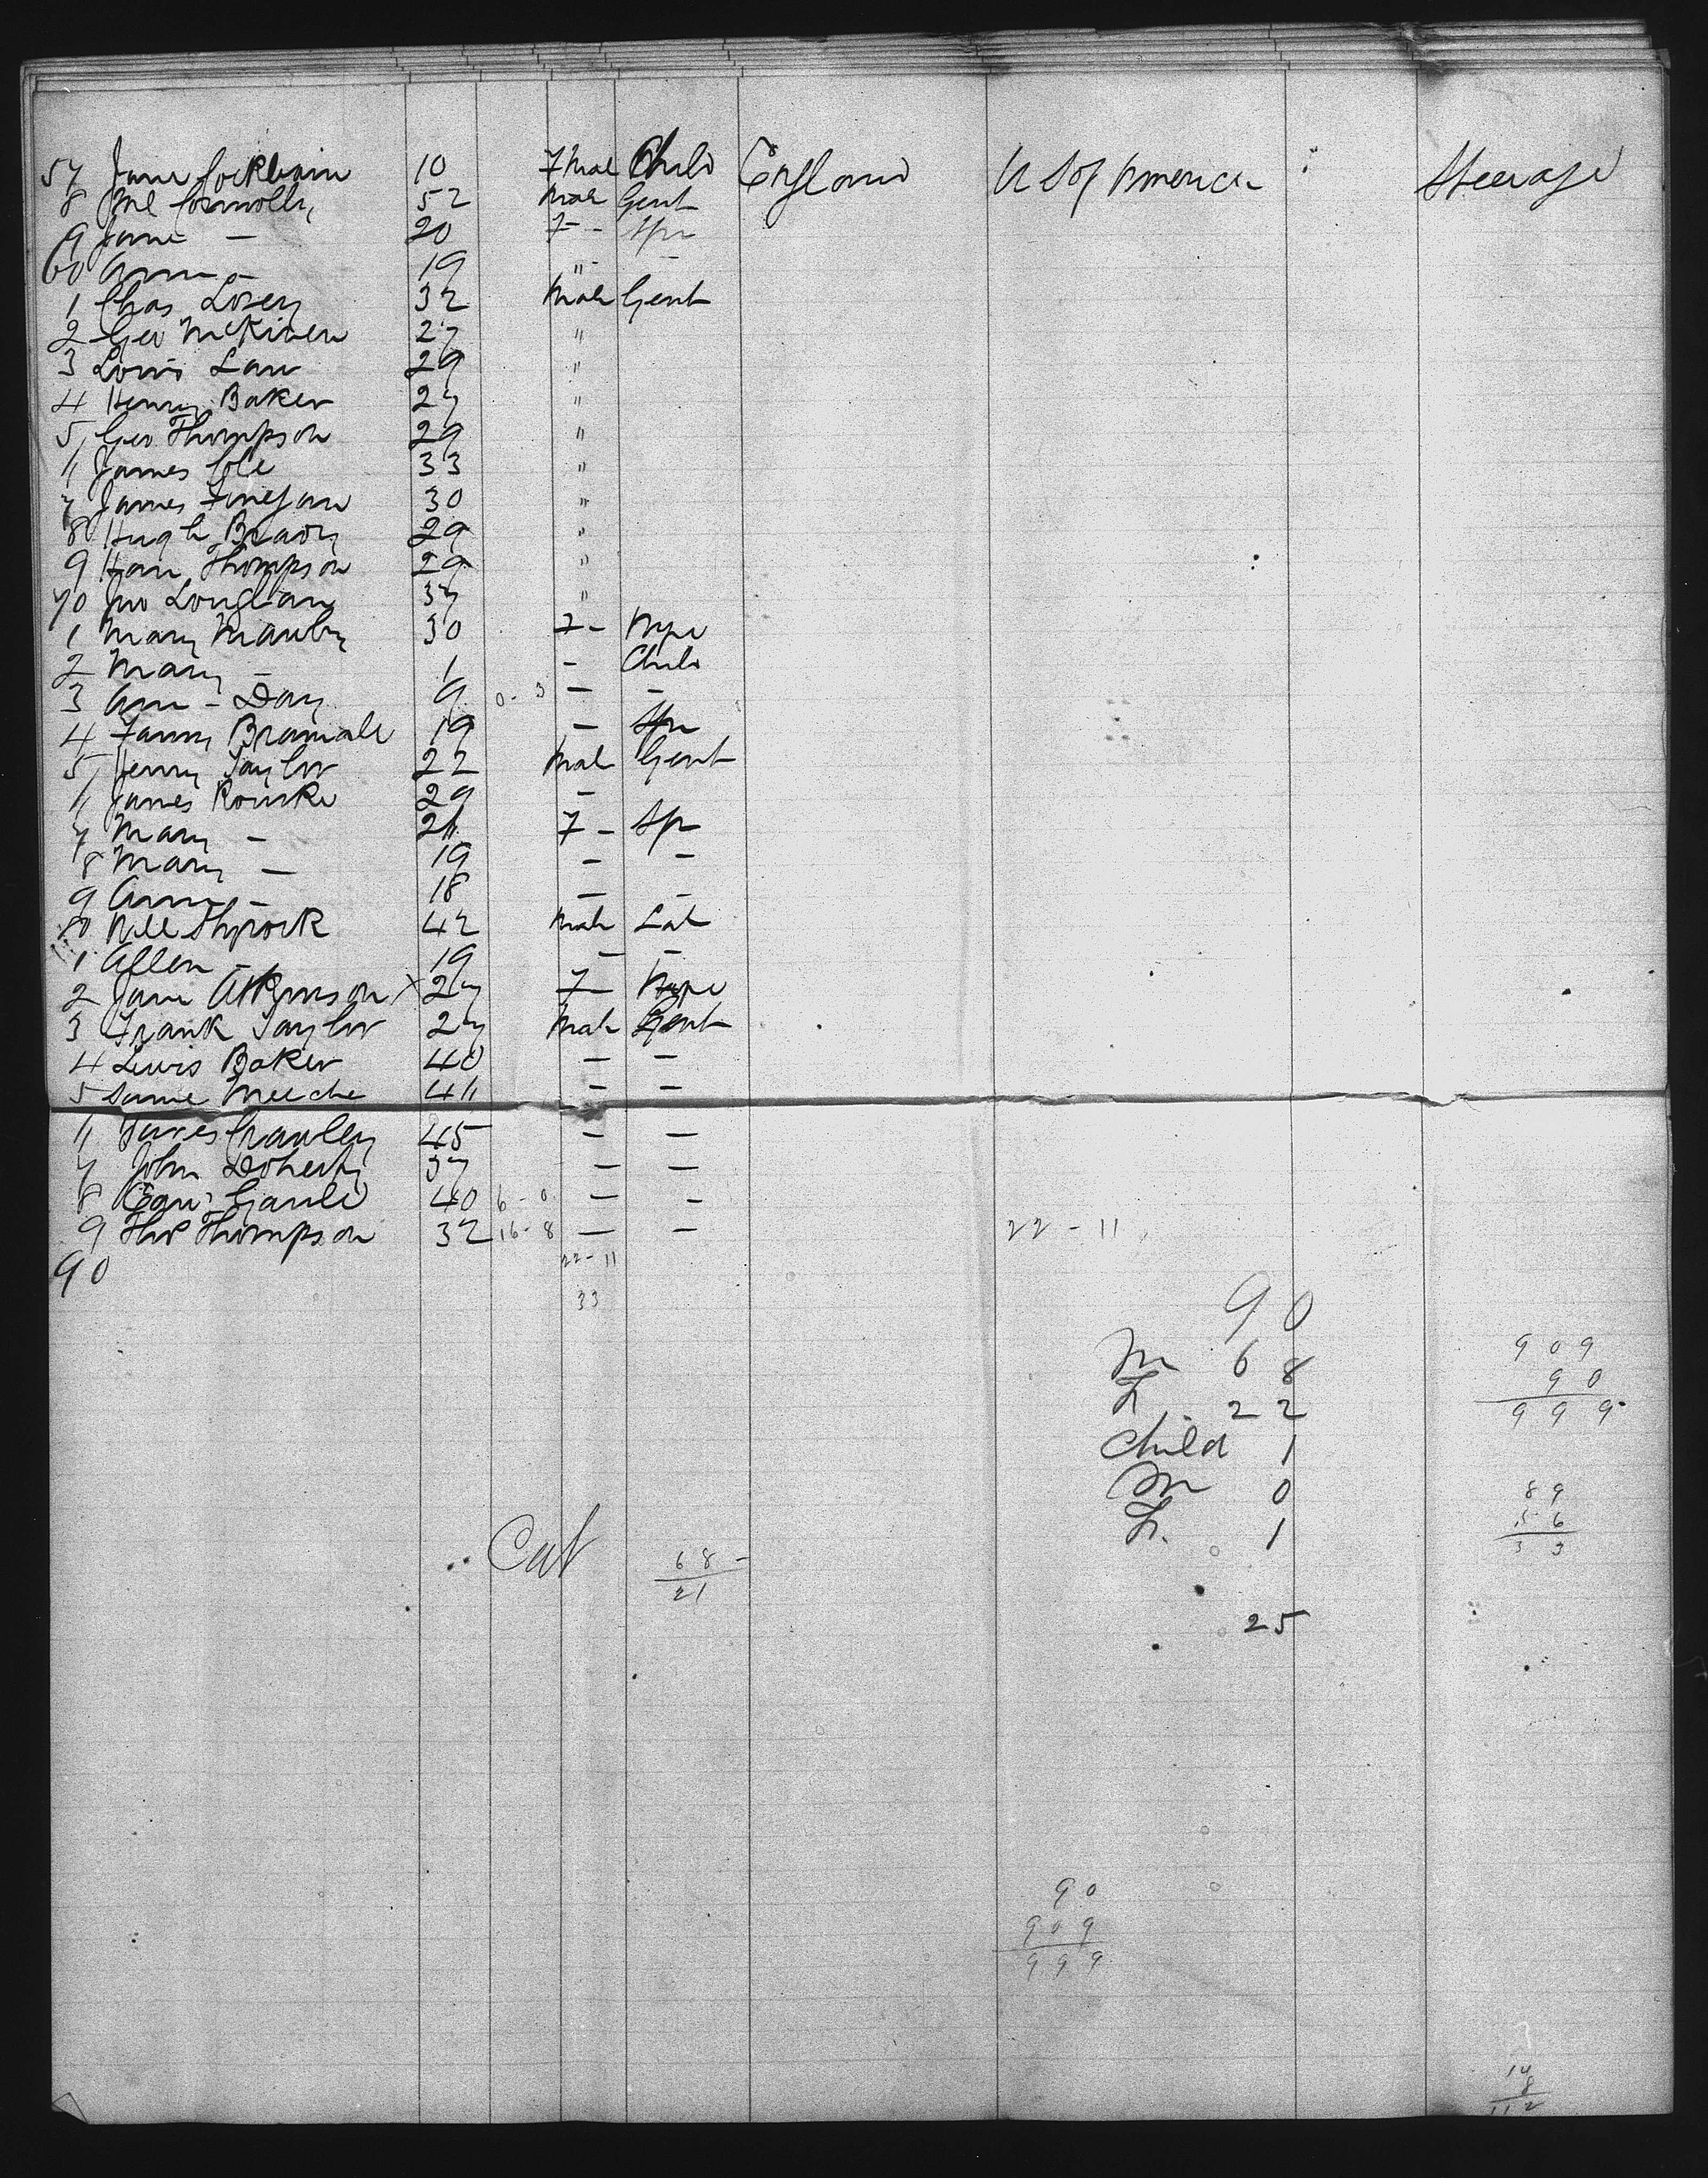 57 Jane Cockbain 10 Fmal Child England U S of America Steerage
8 Ml Connolly 52 Male Gent
9 Jane — 20 F - Spr
60 Ann — 19 " -
1 Chas Losey 32 Male Gent
2 Geo McKiven 27 "
3 Louis Law 29 "
4 Henry Baker 27 "
5 Geo Thompson 29 "
6 James Cole 33 "
7 James Finegan 30 "
8 Hugh Brady 29 "
9 Han Thompson 29 "
70 Jno Loughan 37 "
1 Mary Manby 30 F -
2 Mary — 1 - Child
3 Ann - Day 9 0 - 3 — —
4 Fanny Bramall 19 — Spr
5 Henry Taylor 22 Male Gent
6 James Rourke 29 —
7 Mary — 26 F - Spr
8 Mary — 19 — —
9 Ann — 18 — —
80 Shrock 42 Male Lab
1 Allen — 19 — —
2 Jane Atkinson x 27 F
3 Frank Taylor 27 Male Gent
4 Lewis Baker 40 — —
5 Meeche 46 — —
6 James Crawley 45 — —
7 John Doherty 37 — —
8 Gaule 40 6 - 0 — —
9 Thos Thompson 32 16 - 8 — — 22 - 11
90 22 - 11
33
90
M 68
F. 22
Child 1
M 0
F. 1
25
909
90
999
89
56
33
Cat
68 -
21
90
909
999
14
8
112